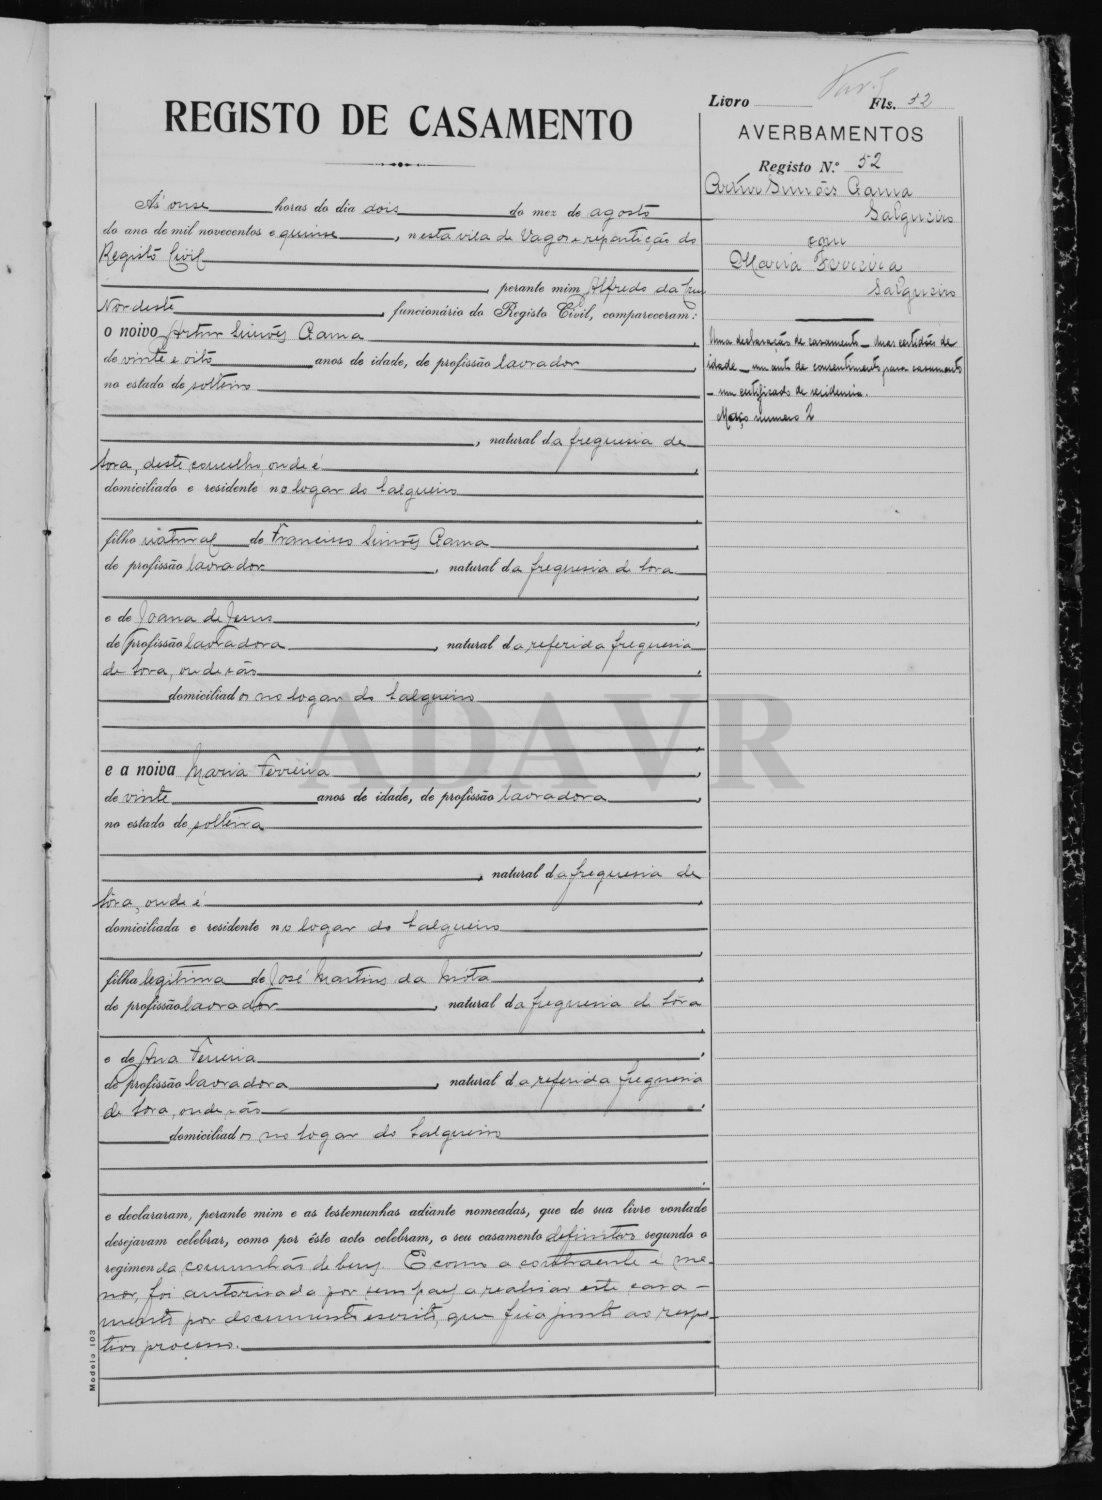 Livro Fls. 52
REGISTO DE CASAMENTO
AVERBAMENTOS
Registo N.º 52
Artur Simões Gama
Salgueiro
com
Maria Ferreira
Salgueiro
Uma declaração de casamento - duas certidões de
idade - um auto de consentimento para casamento
- um certificado de residencia.
Maço numero 2
Ás onse horas do dia dois do mez de agosto
do ano de mil novecentos e quinse, nesta vila de Vagos e repartição do
Registo Civil
perante mim, Alfredo da Cruz
Nordeste, funcionário do Registo Civil, compareceram:
o noivo Artur Simões Gama
de vinte e oito anos de idade, de profissão lavrador,
no estado de solteiro
, natural da freguesia de
Sosa, deste concelho, onde é,
domiciliado e residente no logar do Salgueiro
filho natural de Francisco Simões Gama,
de profissão lavrador, natural da freguesia de Sosa
e de Joana de Jesus,
de profissão lavradora, natural da referida freguesia
de Sosa, onde são,
domiciliados no logar do Salgueiro
e a noiva Maria Ferreira,
de vinte anos de idade, de profissão lavradora,
no estado de solteira
, natural da freguesia de
Sosa, onde é,
domiciliada e residente no logar do Salgueiro
filha legitima de José Martins da Mota,
de profissão lavrador, natural da freguesia de Sosa
e de Ana Ferreira,
de profissão lavradora, natural da referida freguesia
de Sosa, onde são,
domiciliados no logar do Salgueiro
e declararam, perante mim e as testemunhas adiante nomeadas, que de sua livre vontade
desejavam celebrar, como por êste acto celebram, o seu casamento definitivo segundo o
regimen da comunhão de bens. E como a contraente é me-
nor, foi autorisada por seus paes a realisar este casa-
mento por documento escrito, que fica junto ao respe-
tivo processo.
Modelo 103
ADAVR